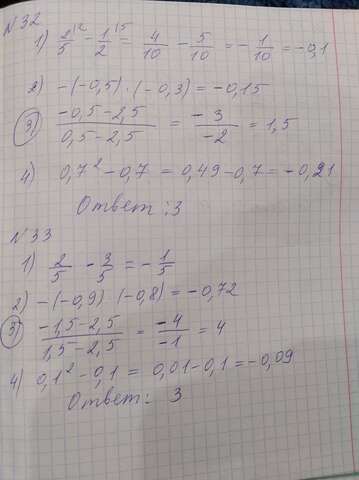 №32
1) 2/5 \2 - 1/2 \5 = 4/10 - 5/10 = - 1/10 = -0,1
2) -(-0,5)·(-0,3) = -0,15
3) (-0,5-2,5)/(0,5-2,5) = -3/-2 = 1,5
4) 0,7² - 0,7 = 0,49 - 0,7 = -0,21
Ответ: 3
№33
1) 2/5 - 3/5 = - 1/5
2) -(-0,9) (-0,8) = -0,72
3) (-1,5-2,5)/(1,5-2,5) = -4/-1 = 4
4) 0,1² - 0,1 = 0,01 - 0,1 = -0,09
Ответ: 3